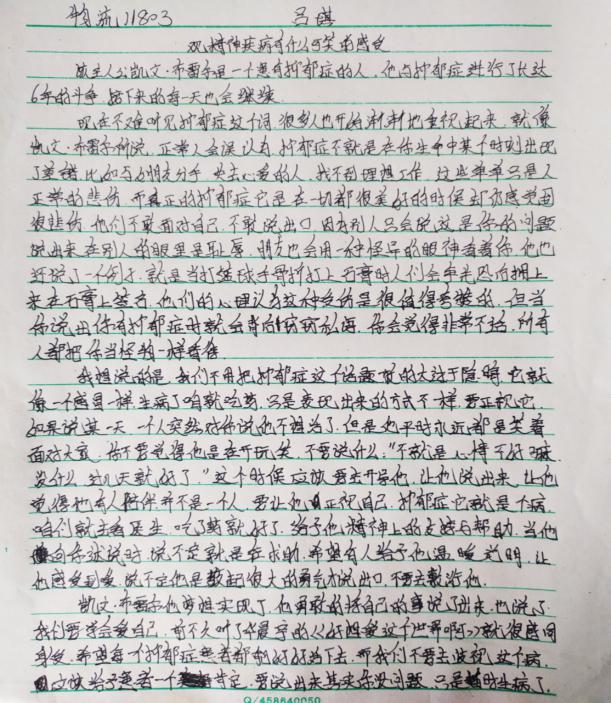 物流11803 吕琪
观精神疾病有什么可笑的感受
故主人公凯文·布雷尔是一个患有抑郁症的人,他与抑郁症进行了长达
6年的斗争,接下来的每一天也会继续
现在不难听见抑郁症这个词,很多人也开始渐渐地重视起来,就像
凯文·布雷尔所说,正常人会误认为,抑郁症不就是在你生命中某个时刻出现
了差错比如与朋友分手,失去心爱的人,找不到理想工作,这些单单只是人
正常的悲伤,而真正的抑郁症它是在一切都很美好的时候却仍感觉到
很悲伤,他们不敢面对自己,不敢说出口,因为别人只会说,这是你的问题
说出来在别人的眼里是耻辱,朋友也会用一种怪异的眼神看着你,他也
还说了一个例子,就是当打篮球手骨折打上石膏时人们会率先恐后拥上
来在石膏上签名,他们的心理认为这种受伤是很值得夸赞的,但当
你说出你有抑郁症时就会背后窃窃私语,你会觉得非常不堪,所有
人都把你当怪物一样看待
我想说的是,我们不用把抑郁症这个话题变的太过于隐晦,它就
像一个感冒一样,生病了咱就吃药,只是表现出来的方式不一样,要正视它
如果说某一天,一个人突然对你说他不想活了,但是他平时永远都是笑着
面对大家,你不要觉得他是在开玩笑,不要说什么:"不就是心情不好嘛
发什么,过几天就好了"这个时候应该要去开导他,让他说出来,让他
觉得他有人陪伴并不是一个人,要让他正视自己,抑郁症它就是个病
咱们就去看医生,吃了药就好了,给予他精神上的支援与帮助,当他
向你诉说时,说不定就是在求助,希望有人给予他温暖光明,让
他感受到爱,说不定他是鼓起很大的勇气才说出口,不要去敷衍他
凯文·布雷尔他梦想实现了,他勇敢的将自己的事说了出来,也说了
我们要学会爱自己,前不久听了华晨宇的《好想爱这个世界啊》,就很感同
身受,希望每个抑郁症患者都能好好活下去,而我们不要去歧视这个病
应该给予患者一个肯定,要说出来其实你没问题,只是暂时生病了,
Q/458640050